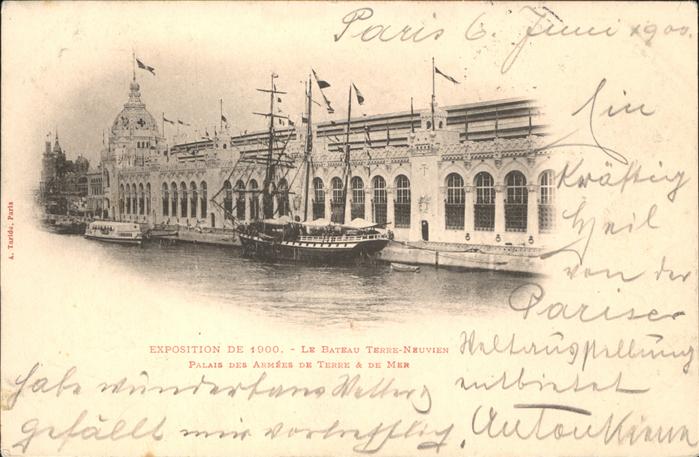 Paris 6. Juni 1900.
Ein
Kräftig
Heil
von der
Pariser
Weltausstellung
entbietet
Anton
habe wunderbares Wetter,
gefällt mir vortrefflich,
EXPOSITION DE 1900. - LE BATEAU TERRE-NEUVIEN
PALAIS DES ARMÉES DE TERRE & DE MER
A. Taride, Paris